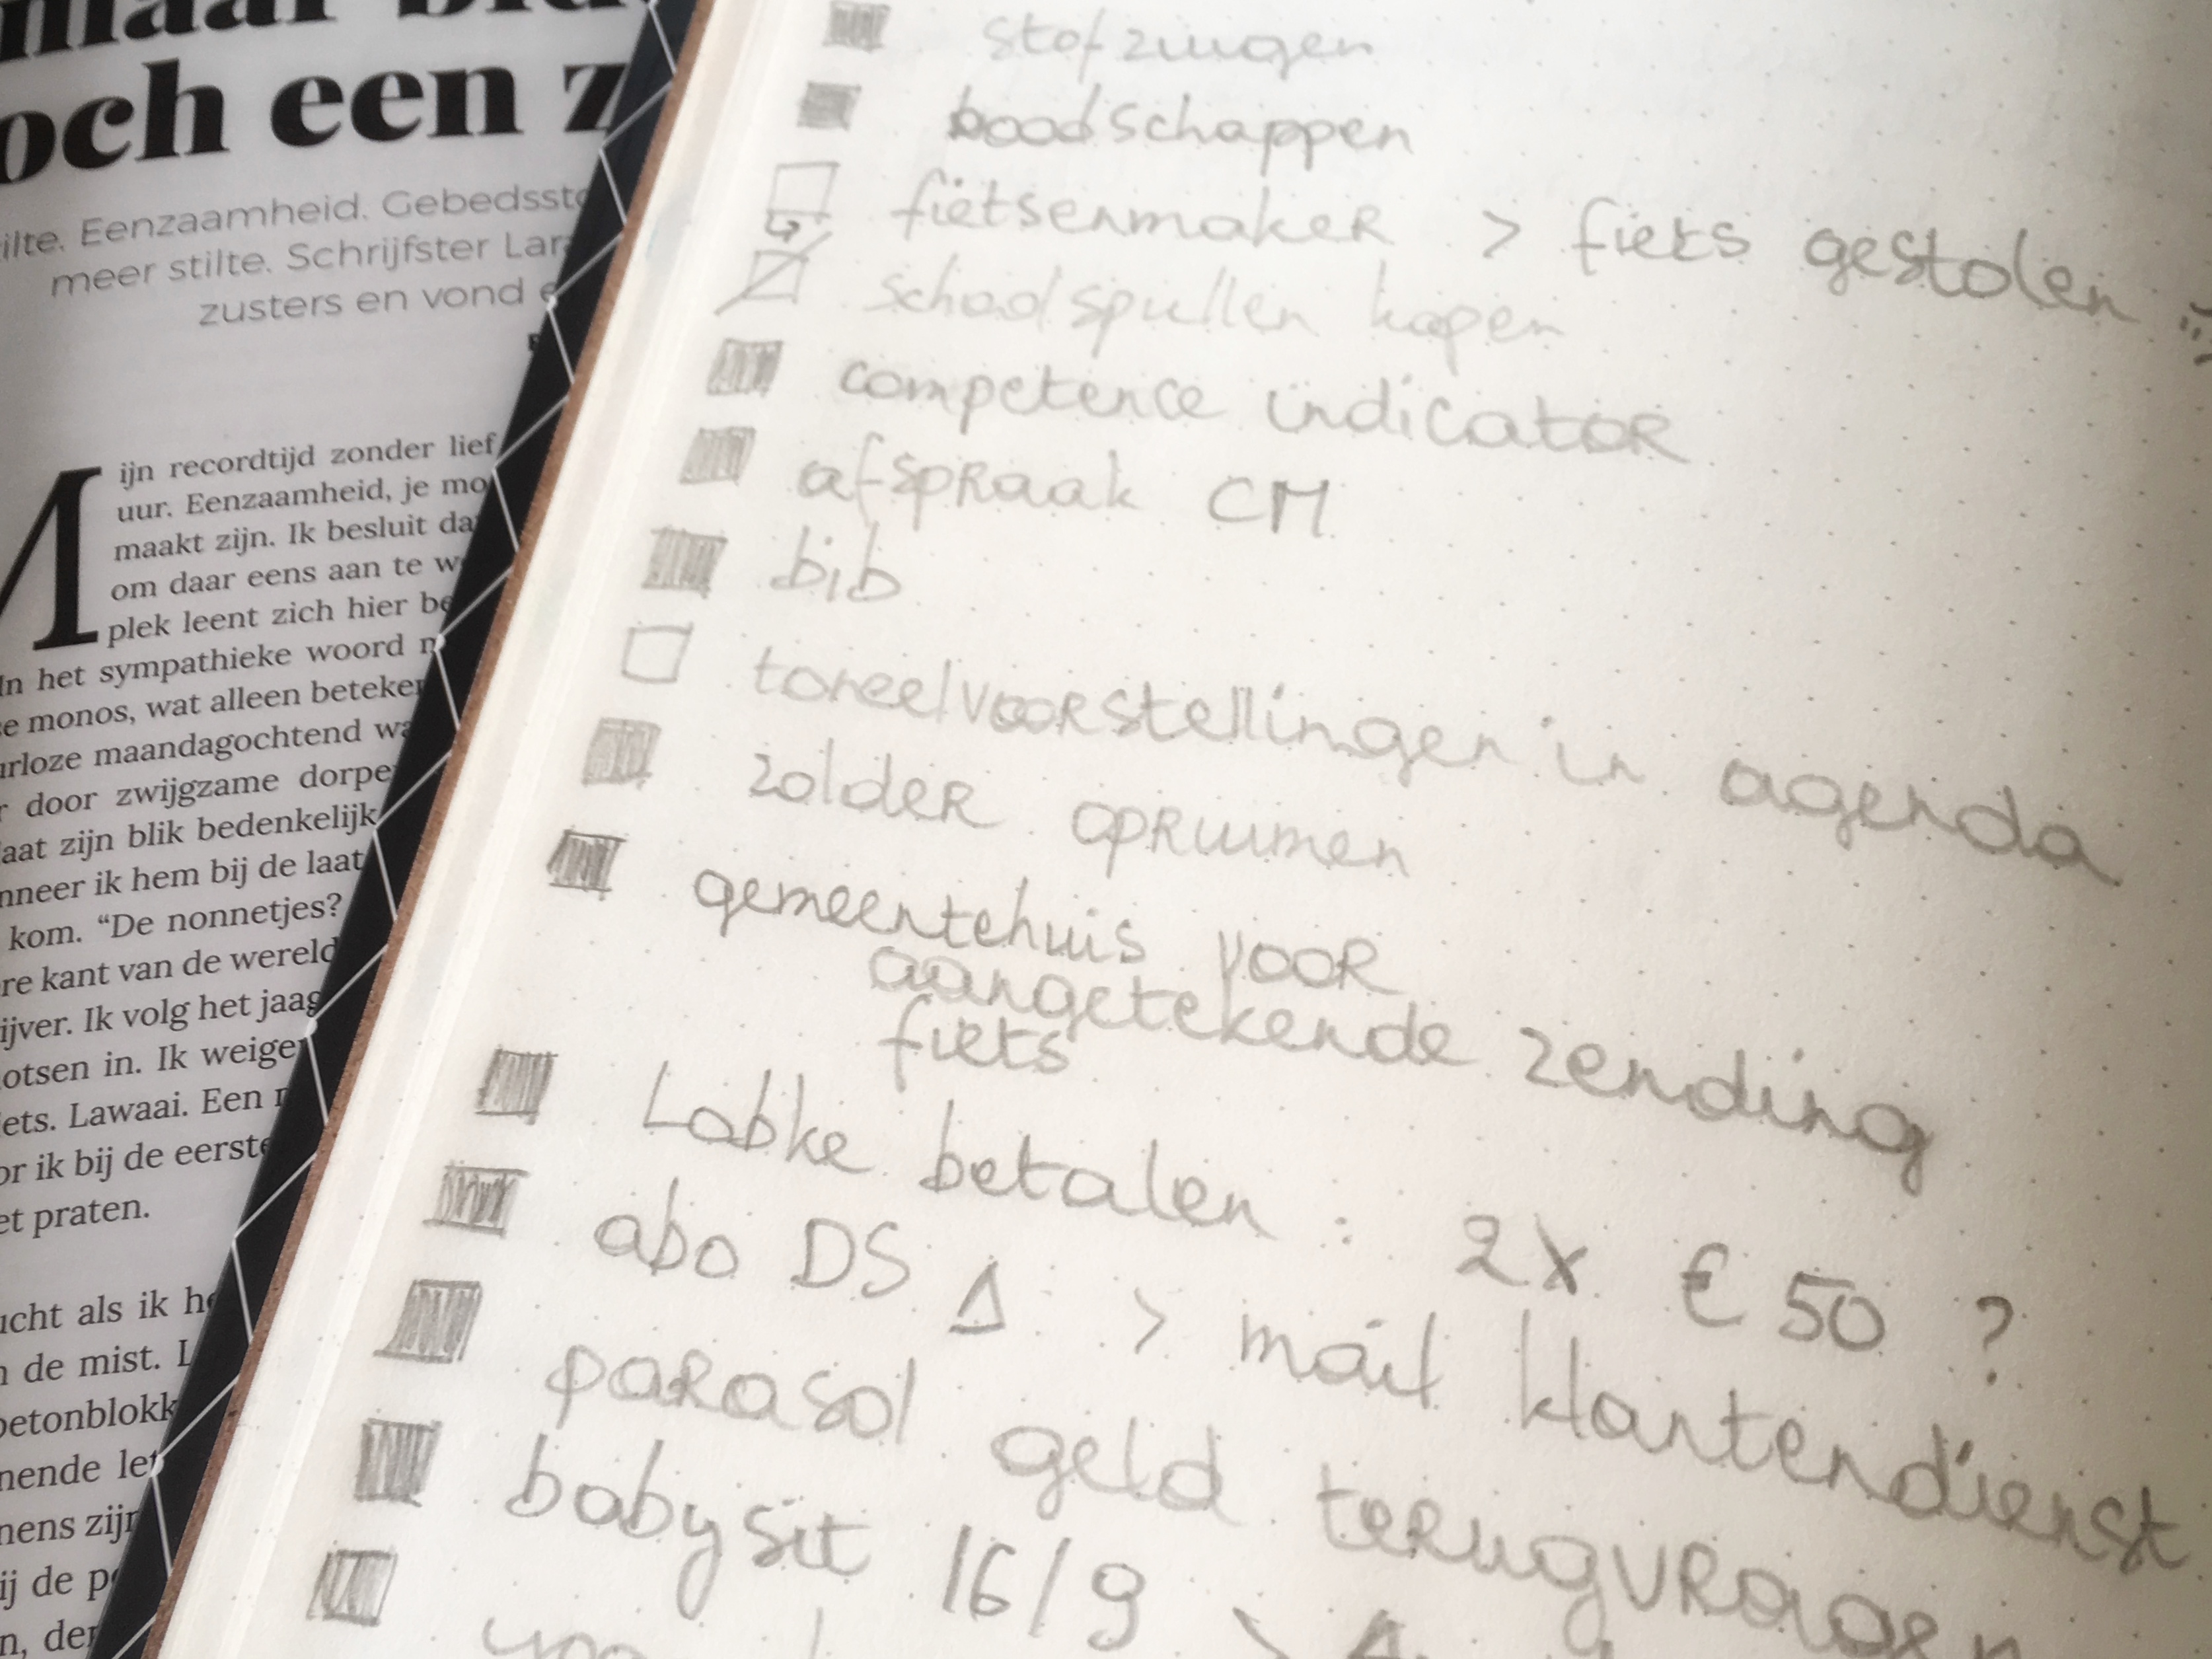 och een z
ilte. Eenzaamheid.
meer stilte. Schrijfster
zusters en vond
Mijn recordtijd zonder lief
uur. Eenzaamheid, je mo
maakt zijn. Ik besluit da
om daar eens aan te w
plek leent zich hier be
In het sympathieke woord
monos, wat alleen beteken
urloze maandagochtend wa
r door zwijgzame dorpe
aat zijn blik bedenkelijk
nneer ik hem bij de laat
kom. “De nonnetjes?
re kant van de wereld
ijver. Ik volg het jaag
otsen in. Ik weige
ets. Lawaai. Een
or ik bij de eerste
et praten.
ucht als ik he
de mist.
betonblokk
nende
nens zijn
ij de
n, der
stofzuigen
boodschappen
fietsenmaker > fiets gestolen
schoolspullen kopen
competence indicator
afspraak CM
bib
toneelvoorstellingen in agenda
zolder opruimen
gemeentehuis voor
aangetekende zending
fiets
Labke betalen : 2x € 50 ?
abo DS 1 > mail klantendienst
parasol geld terugvragen
babysit 16/9 >